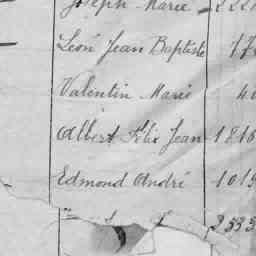 Joseph Marie 222
Léon Jean Baptiste 17
Valentin Marie 40
Albert Félix Jean 1816
Edmond André 1019
2535